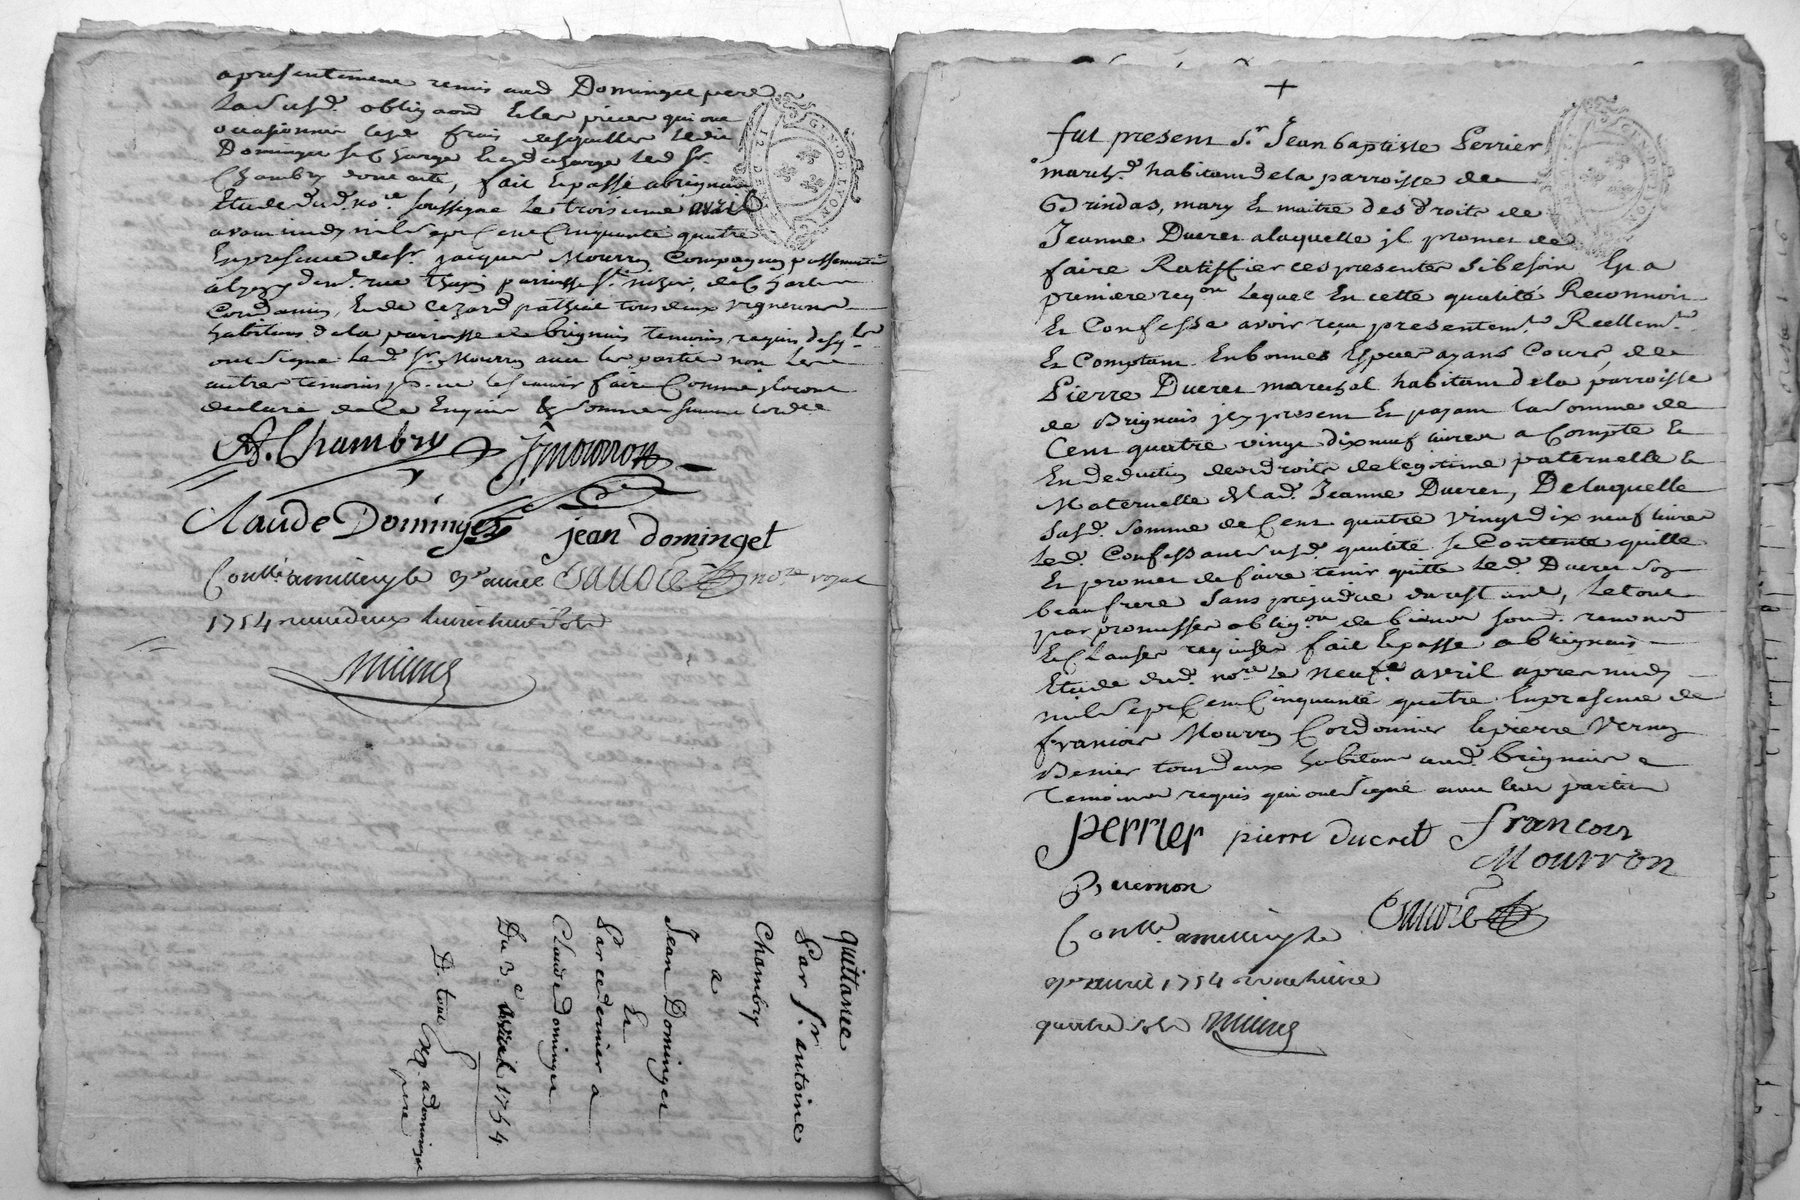 apresentement remis aud Dominget pere
lad susd. obligaõn et les pieces qui ont
occasionné lesd frais desquelles ledit
Dominget se charge et en decharge led Sr.
Chambry dont acte, fait et passé a brignais
Etude dud. no.re soussigné le troisieme avril
avant midy mil sept Cent Cinquante quatre
En presence de Sr. jacques Mourron Compagnon passementier
a lyon y dem.t rue Thomassin parroisse St. nizier, de Charles
Condamin, et de Cezard pathiat tous deux vignerons
habitans de la parroisse de brignais temoins requis desq.ls
ont signé led. Sr. Mourron avec les parties non les
autres temoins p.r ne le scavoir faire Comme ils ont
declaré de ce Enquis & sommes suivant lordce
A. Chambry J. mourron
Claude Dominget jean dominget
Conllé a millery le 3e avril Gauvre not.re royal
1754 reçu deux livres huit sols
12 DE
GEN. DE LYON
quittance
Par Sr. antoine
Chambry
a
Jean Dominget
Et
Par ce dernier a
Claude Dominget
Du 3e avril 1754
D. tout Exp. a dominget
pere
+
fut present Sr. Jean baptiste Perrier
march.d habitant de la parroisse de
Grindas, mary et maitre des droits de
Jeanne Ducret a laquelle jl promet de
faire Ratiffier ces presentes si besoin Est a
premiere req.on Lequel En cette qualité Reconnoit
Et Confesse avoir reçu presentem.t Reellem.t
Et Comptant En bonnes Especes ayans Cours de
Pierre Ducret marechal habitant de la parroisse
de Brignais jcy present Et payant la somme de
Cent quatre vingt dix neuf livres a Compte et
En deduction des droits de legitime paternelle et
Maternelle de lad. Jeanne Ducret, De laquelle
susd. somme de Cent quatre vingt dix neuf livres
led. Confessant susd. qualité se Contente quitte
Et promet de faire tenir quitte led. Ducret son
beau frere sans prejudice du restant, le tout
par promesses oblig.on de biens soum. renond
Et Clauses requises fait et passé a brignais
Etude dud. no.re le neuf.e avril apres midy
mil sept Cent Cinquante quatre En presence de
francois Mourron Cordonnier et pierre Vernon
tous deux habitans aud. brignais
Temoins requis qui ont signé avec les parties
perrier pierre ducret francois
Mourron
P. vernon
Conllé a millery le Gauvre
9e avril 1754 reçu livre
quatre sols